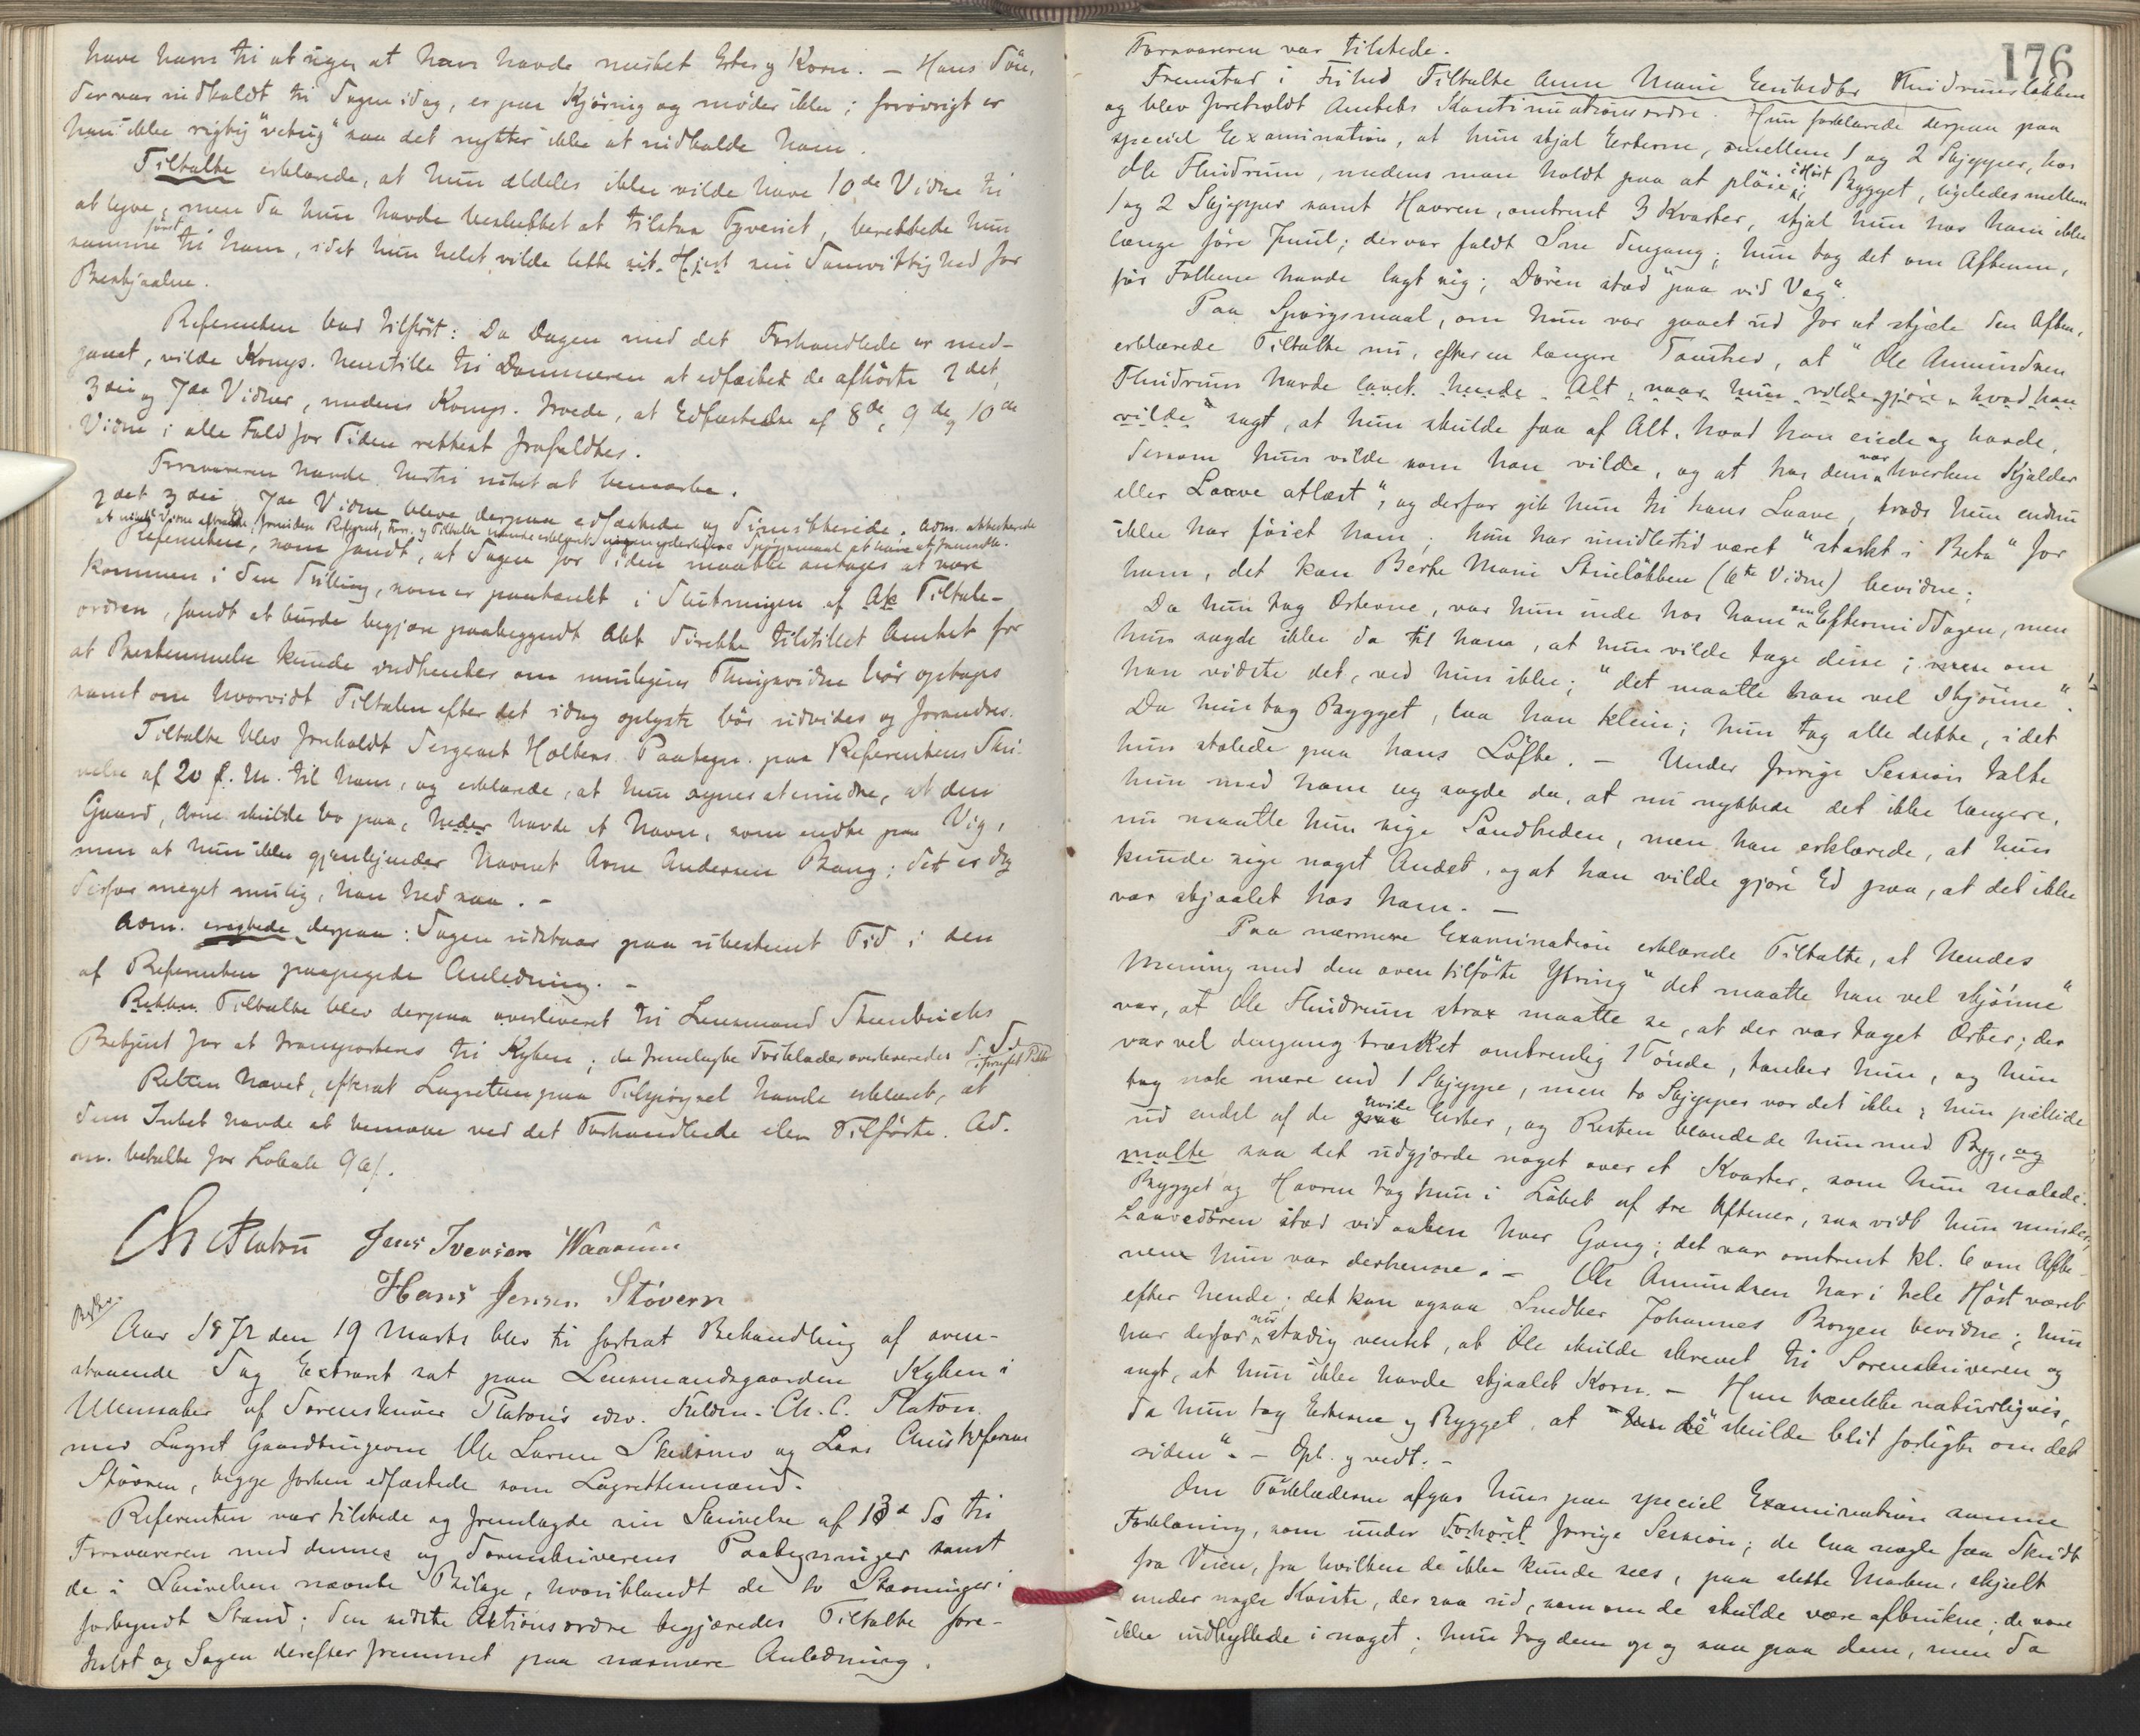 have ham til at sige, at han havde mistet Erter og Korn. – Hans Søn,
der var indkaldt til Sagen idag, er paa Kjøring og møder ikke; forøvrigt er
han ikke rigtig "vetug" saa det nytter ikke at indkalde ham.
Tiltalte erklærede, at hun aldeles ikke vilde have 10de Vidne til
at lyve, men da hun havde besluttet at tilstaa Tyveriet, berettede hun
samme først til ham, idet hun helst vilde lette sit Hjert sin Samvittighed for
Bestjaalne.
Referenten bad tilført: Da Dagen med det Forhandlede er med-
gaaet, vilde Komp. henstille til Dommeren at edfæste de afhørte 2det,
3die og 7de Vidner, medens Komp. troede, at Edfæstelse af 8de, 9de og 10de
Vidne i alle Fald for Tiden rettest frafaldtes.
Forsvareren havde hertil intet at bemærke.
2det 3die 7de Vidne bleve derpaa edfæstede og dimitterede. Adm. attesterede
at Vidne aftraadte, forinden Referent, Fors. og Tiltalte havde erklæret ingen yderligere Spørgsmaal at have at fremsætte.
Referenten, som fandt, at Sagen for Tiden maatte antages at være
kommen i den Stilling, som er paatænkt i Slutningen af Tiltale-
ordren, fandt at burde begjære paabegyndt Akt direkte tilstillet Amtet for
at Bestemmelse kunde indhentes om muligens Thingsvidne bør optages
samt om hvorvidt Tiltalen efter det idag oplyste bør udvides og forandres.
Tiltalte blev foreholdt Sergeant Holtens Paategn. paa Referentens Skri-
velse af 20 f. M. til ham, og erklærede, at hun synes at mindes, at den
Gaard, Arne skulde bo paa, havde et Navn, som endte paa Vig,
men at hun ikke gjenkjender Navnet Arne Andersen Bang; det er dog
derfor meget mulig, han hed saa. –
Adm. eragtede derpaa: Sagen udstaar paa ubestemt Tid i den
af Referenten paapegede Anledning. –
Retten Tiltalte blev derpaa overleveret til Lensmand Steenbocks
Betjent for at transporteres til Kylen; de fremlagte Tørklæder overleveredes
Retten hævet, efterat Lagretten paa Tilspørgsel havde erklæret, at
dem Intet havde at bemærke ved det Forhandlede eller Tilførte. Ad.
m. betalte for Lokale
Ch Platou Jens Iversen Waarum
Hans Jensen Støvern
Aar 1872 den 19 Marts blev til fortsat Behandling af oven-
staaende Sag Extraret sat paa Lensmandsgaarden Kylen i
Ullensaker af Sorenskriver Platous edsv. Fuldm. Ch. C. Platou
med Lagret Gaardbrugerne Ole Larsen Skedsmo og Lars Christophersen
Støvern, begge forhen edfæstede som Lagrettesmænd.
Referenten var tilstede og fremlagde sin Skrivelse af 13de ds til
Forsvareren med dennes og Sorenskriverens Paategninger samt
de i Skrivelsen nævnte Bilage, hvoriblandt de to Stævninger i
forkyndt Stand; den sidste Aktionsordre begjæredes Tiltalte fore-
holdt og Sagen derefter fremmet paa nærmere Anledning.
176
Forsvareren var tilstede.
Fremstod i Frihed Tiltalte Anne Marie Eriksdtr Fluidrumsløkken
og blev foreholdt Amtets Kontinuationsordre. Hun forklarede derpaa paa
speciel Examination, at hun stjal Erterne, omellem 1 og 2 Skjepper, hos
Ole Fluidrum, medens man holdt paa at pløie ihøst; Bygget, ligeledes mellem
1 og 2 Skjepper samt Havren, omtrent 3 Kvarter, stjal hun hos ham ikke
længe føre Juul; der var faldt Sne dengang; hun tog det om Aftenen,
før Folkene havde lagt sig; Døren stod "paa vid Væg".
Paa Spørgsmaal, om hun var gaaet ud for at stjæle den Aften,
erklærede Tiltalte nu, efter en længere Taushed, at "Ole Amundsen
Fluidrum havde lovet hende Alt, naar hun vilde gjøre, hvad han
vilde" sagt, at hun skulde faa af Alt, hvad han eiede og havde,
dersom hun vilde som han vilde, og at hos dem var hverken Kjelder
eller Laave aflæst", og derfor gik hun til hans Laave, trods hun endnu
ikke har føiet ham; hun har imidlertid været "stærkt i Beta" for
ham, det kan Berte Marie Strieløkken (6te Vidne) bevidne;
Da hun tog Erterne, var hun inde hos ham om Eftermiddagen, men
hun sagde ikke da til ham, at hun vilde tage disse; men om
han vidste det, ved hun ikke; "det maatte han vel skjønne".
Da hun tog Bygget, laa han klein; hun tog alle dette, idet
hun stolede paa hans Løfte. – Under forrige Session talte
hun med ham og sagde da, at nu nyttede det ikke længere,
nu maatte hun sige Sandheden, men han erklærede, at hun
kunde sige noget Andet, og at han vilde gjøre Ed paa, at det ikke
var stjaalet hos ham. –
Paa nærmere Examination erklærede Tiltalte, at hendes
Mening med den oven tilførte Ytring "det maatte han vel skjønne"
var, at Ole Fluidrum strax maatte se, at der var taget Erter; der
var vel dengang træsket omtrentlig 1 Tønde, tænker hun, og hun
tog nok mere end 1 Skjeppe, men to Skjepper var det ikke; hun pillede
ud endel af de graa hvide Erter, og Resten blandede hun med Byg, og
malte saa det udgjorde noget over et Kvarter, som hun malede.
Bygget og Havren tog hun i Løbet af tre Aftener, saa vidt hun mindes;
Laavedøren stod vidaaben hver Gang; det var omtrent kl. 6 om Afte-
nene hun var derhenne. – Ole Amundsen har i hele Høst været
efter hende; det kan ogsaa Snedker Johannes Borgen bevidne; hun
har derfor nu stadig ventet, at Ole skulde skrevet til Sorenskriveren og
sagt, at hun ikke havde stjaalet Korn. – Hun tænkte naturligvis,
da hun tog Erterne og Bygget, at "de skulde blit forligte om det
siden". – Opl. og vedt. –
Om Tørklæderne afgav hun paa speciel Examination samme
Forklaring, som under Forhøret forrige Session; de laa nogle faa Skridt
fra Veien, fra hvilken de ikke kunde sees, paa slette Marken, skjult
under nogle Kviste, der saa ud, som om de skulde være afbrukne; de vare
ikke indhyllede i noget; hun tog dem op og saa paa dem, men da